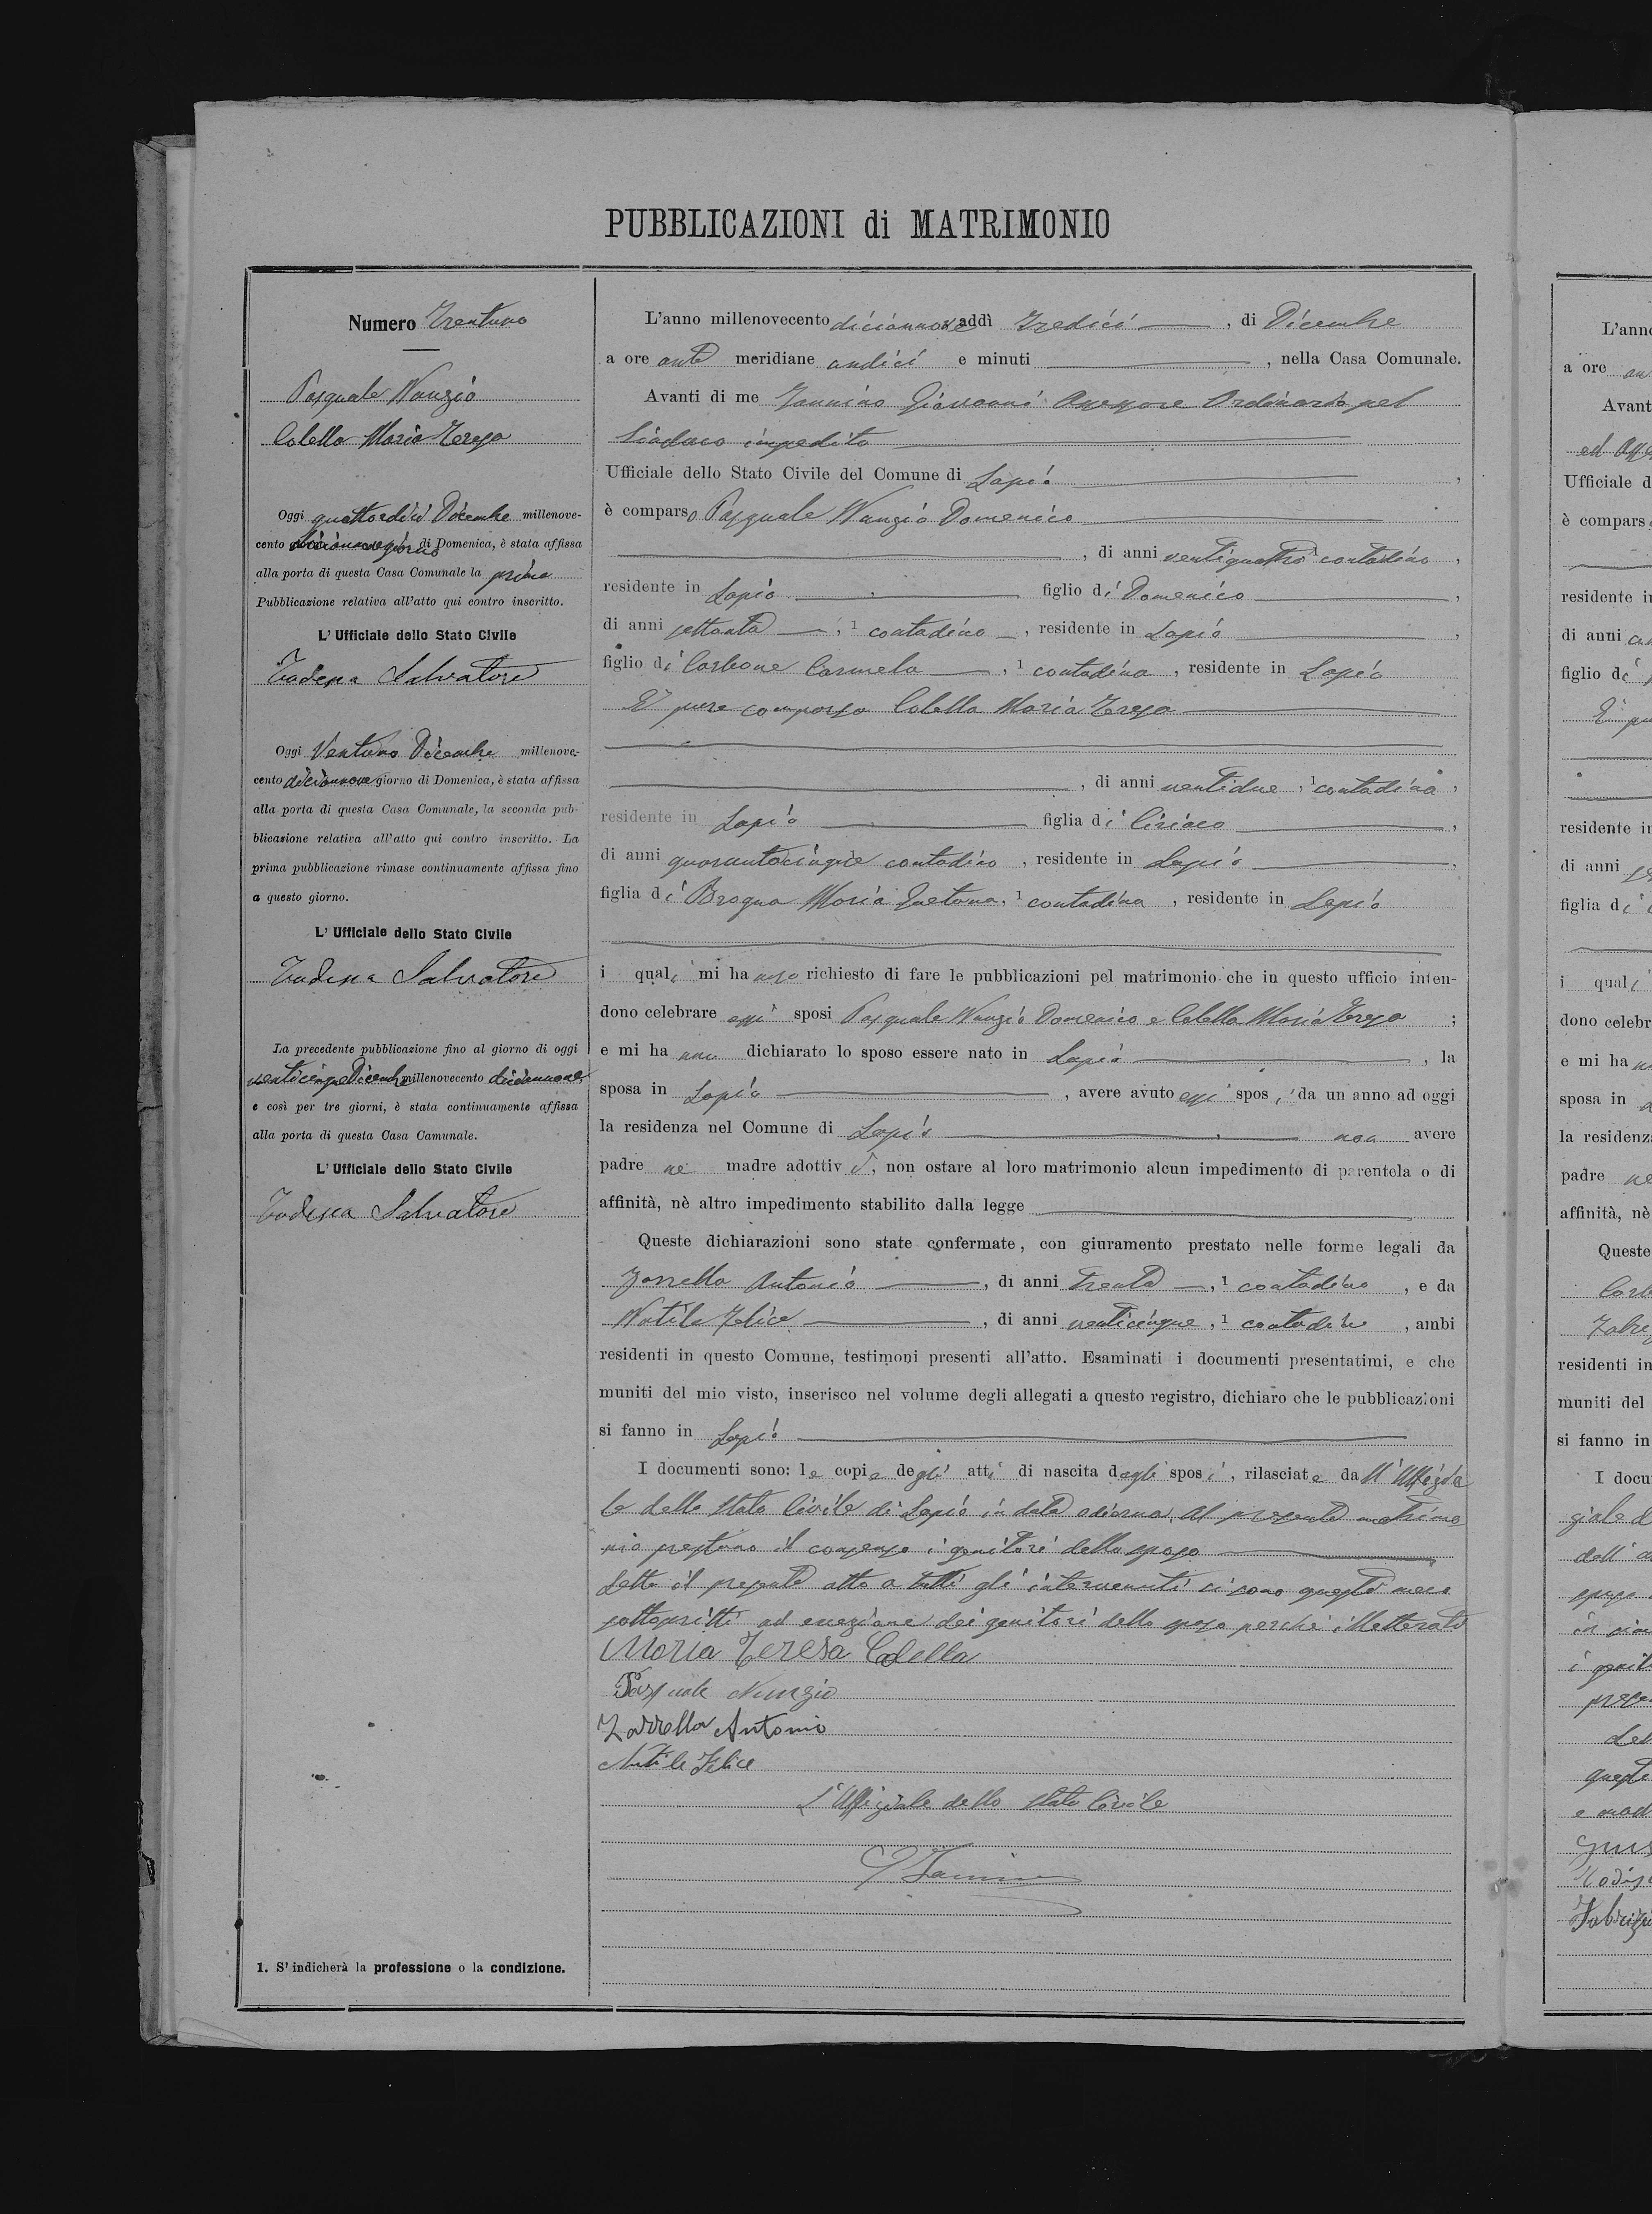 PUBBLICAZIONI di MATRIMONIO
Numero Trentuno
Pasquale Nunzio
Colella Maria Teresa
Oggi quattordici Dicembre millenove-
cento diciannove giorno di Domenica, è stata affissa
alla porta di questa Casa Comunale la prima
Pubblicazione relativa all'atto qui contro inscritto.
L' Ufficiale dello Stato Civile
Salvatore
Oggi Ventuno Dicembre millenove-
cento diciannove giorno di Domenica, è stata affissa
alla porta di questa Casa Comunale, la seconda pub-
blicazione relativa all'atto qui contro inscritto. La
prima pubblicazione rimase continuamente affissa fino
a questo giorno.
L' Ufficiale dello Stato Civile
Salvatore
La precedente pubblicazione fino al giorno di oggi
venticinque Dicembre millenovecento diciannove
e così per tre giorni, è stata continuamente affissa
alla porta di questa Casa Camunale.
L' Ufficiale dello Stato Civile
Salvatore
1. S' indicherà la professione o la condizione.
L'anno millenovecento diciannove addì Tredici , di Dicembre
a ore anti meridiane undici e minuti , nella Casa Comunale.
Avanti di me Iannino Giovanni Assessore Ordinario pel
Sindaco impedito
Ufficiale dello Stato Civile del Comune di Lapio ,
è comparso Pasquale Nunzio Domenico
, di anni ventiquattro 1 contadino ,
residente in Lapio figlio di Domenico ,
di anni settanta , 1 contadino , residente in Lapio ,
figlio di Carbone Carmela , 1 contadina , residente in Lapio
E' pure comparsa Colella Maria Teresa
, di anni ventidue , 1 contadina ,
residente in Lapio figlia di Ciriaco ,
di anni quarantacinque contadino , residente in Lapio ,
figlia di Brogna Maria Gaetana, 1 contadina , residente in Lapio
i quali mi hanno richiesto di fare le pubblicazioni pel matrimonio che in questo ufficio inten-
dono celebrare essi sposi Pasquale Nunzio Domenico e Colella Maria Teresa ;
e mi hanno dichiarato lo sposo essere nato in Lapio , la
sposa in Lapio , avere avuto essi sposi da un anno ad oggi
la residenza nel Comune di Lapio non avere
padre nè madre adottivi, non ostare al loro matrimonio alcun impedimento di parentela o di
affinità, nè altro impedimento stabilito dalla legge
Queste dichiarazioni sono state confermate, con giuramento prestato nelle forme legali da
Zarrella Antonio , di anni trenta , 1 contadino , e da
Natile Felice , di anni venticinque , 1 contadino , ambi
residenti in questo Comune, testimoni presenti all'atto. Esaminati i documenti presentatimi, e che
muniti del mio visto, inserisco nel volume degli allegati a questo registro, dichiaro che le pubblicazioni
si fanno in Lapio
I documenti sono: le copie degli atti di nascita degli sposi, rilasciate dall'Uffizia
le dello Stato Civile di Lapio in data odierna. Al presente matrimo
nio prestano il consenso i genitori dello sposo
Letto il presente atto a tutti gli intervenuti si sono questi meco
sottoscritti ad eccezione dei genitori dello sposo perchè illetterati
Maria Teresa Colella
Pasquale Nunzio
Zarrella Antonio
Natile Felice
L'Uffiziale dello Stato Civile
G Iannino
L'anno
a ore
Avant
Ufficiale d
è compars
residente in
di anni
figlio di
E' pu
residente in
di anni
figlia di
i quali
dono celebr
e mi ha
sposa in
la residenz
padre ne
affinità, nè
Queste
residenti in
muniti del
si fanno in
I docu